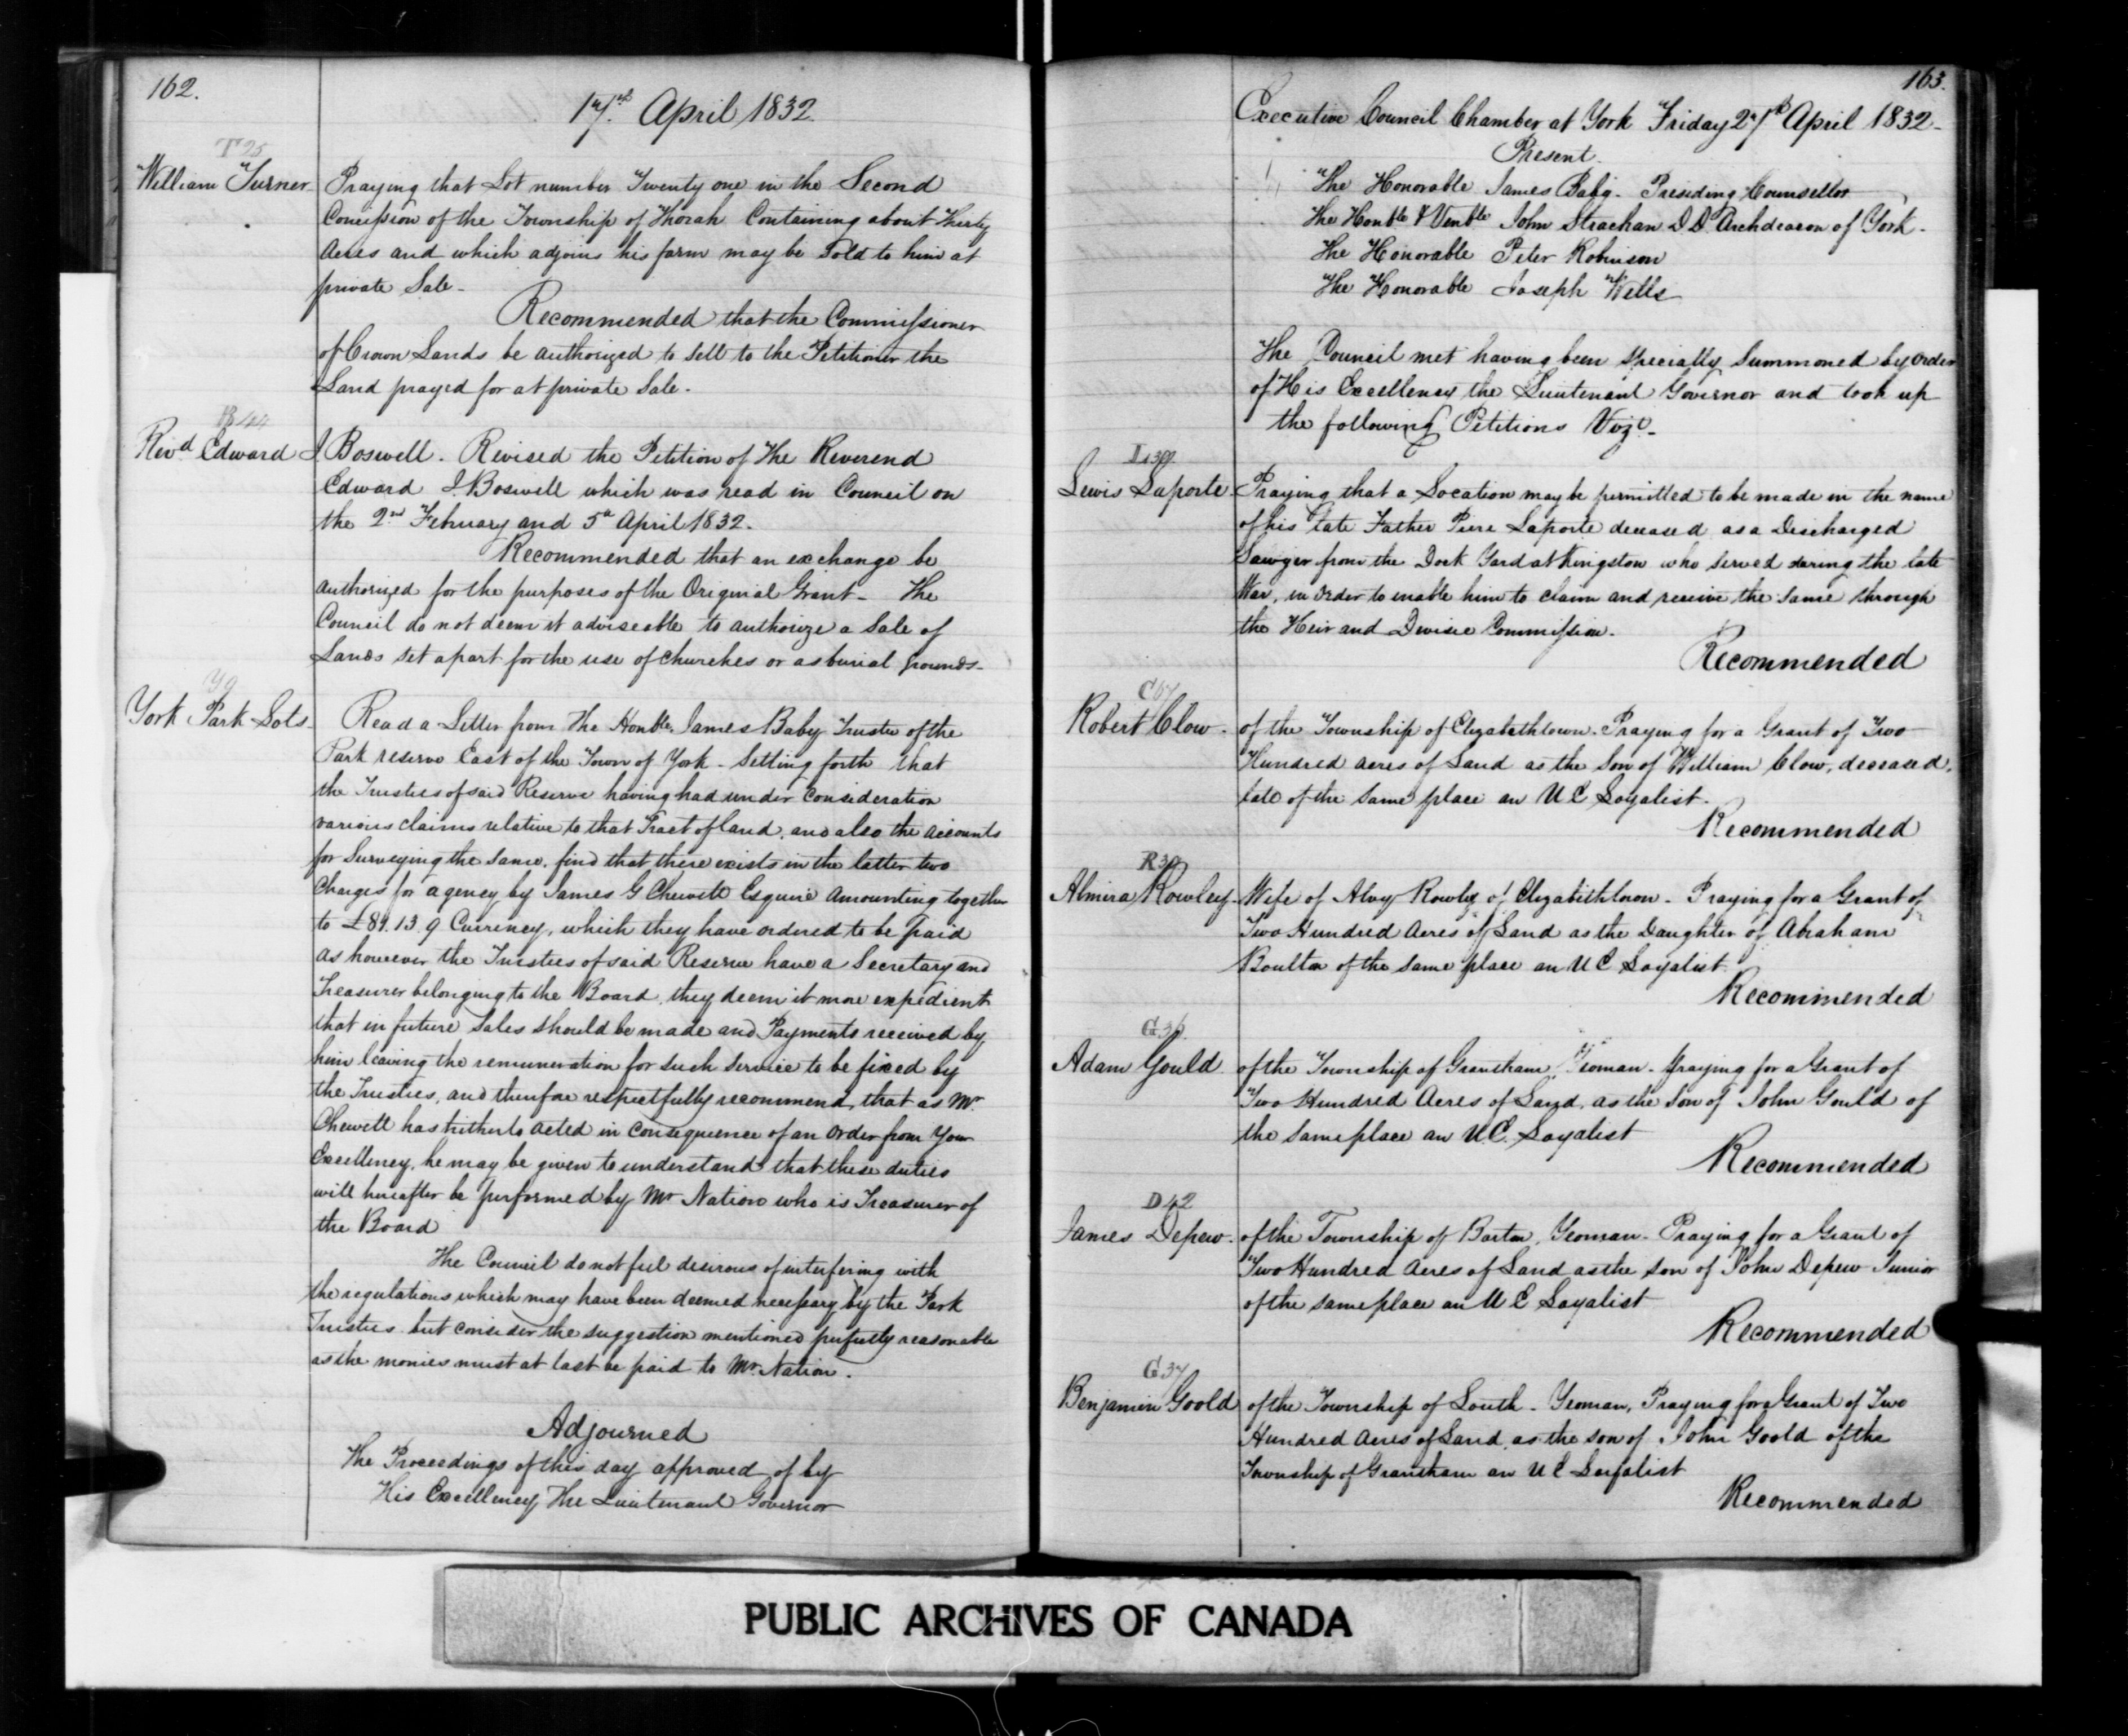 162.
17th April 1832.
T 25
William Turner Praying that Lot number Twenty one in the Second
Concession of the Township of Thorah Containing about Thirty
Acres and which adjoins his farm may be Sold to him at
private Sale -
Recommended that the Commissioner
of Crown Lands be authorized to sell to the Petitioner the
Land prayed for at private Sale.
B 44
Revd Edward J. Boswell. Revised the Petition of The Reverend
Edward J. Boswell which was read in Council on
the 2nd February and 5th April 1832.
Recommended that an exchange be
authorized for the purposes of the Original Grant - The
Council do not deem it adviseable to authorize a Sale of
Lands set apart for the use of churches or as burial grounds -
Y 9
York Park Lots - Read a Letter from The Honble James Baby Trustee of the
Park reserve East of the Town of York - Setting forth that
the Trustees of said Reserve having had under consideration
various claims relative to that Tract of land, and also the accounts
for Surveying the same, find that there exists in the latter two
Charges for agency by James G Chewett Esquire amounting together
to £89.13.9 Currency, which they have ordered to be paid
As however the Trustees of said Reserve have a Secretary and
Treasurer belonging to the Board, they deem it more expedient
that in future Sales should be made and Payments received by
him leaving the remuneration for such Service to be fixed by
the Trustees, and therefore respectfully recommend, that as Mr
Chewett has hitherto acted in consequence of an order from Your
Excellency, he may be given to understand that these duties
will hereafter be performed by Mr Nation who is Treasurer of
the Board
The Council do not feel desirous of interfering with
the regulations which may have been deemed necessary by the Park
Trustees but consider the suggestion mentioned perfectly reasonable
as the monies must at last be paid to Mr Nation.
Adjourned
The Proceedings of this day approved of by
His Excellency The Lieutenant Governor
163.
Executive Council Chamber at York Friday 27th April 1832 -
Present.
The Honorable James Baby - Presiding Counsellor
The Honble & Venble John Strachan D D Archdeacon of York -
The Honorable Peter Robinson
The Honorable Joseph Wells
The Council met having been specially Summoned by order
of His Excellency the Lieutenant Governor and took up
the following Petitions Vizt -
L 39
Lewis Laporte Praying that a Location may be permitted to be made in the name
of his late Father Piere Laporte deceased as a Discharged
Sawyer from the Dock Yard at Kingston who served during the late
War, in order to enable him to claim and receive the same through
the Heir and Devisee Commission.
Recommended
C 67
Robert Clow - of the Township of Elizabethtown - Praying for a Grant of Two
Hundred acres of Land as the Son of William Clow, deceased,
late of the same place an U E Loyalist.
Recommended
R 30
Almira Rowley - Wife of Alvy Rowley of Elizabethtown - Praying for a Grant of
Two Hundred Acres of Land as the Daughter of Abraham
Boulton of the same place an U E Loyalist
Recommended
G 36
Adam Gould of the Township of Grantham Yeoman - Praying for a Grant of
Two Hundred Acres of Land, as the Son of John Gould of
the same place an U.E. Loyalist
Recommended
D 42
James Depew - of the Township of Barton, Yeoman - Praying for a Grant of
Two Hundred Acres of Land as the son of John Depew Junior
of the same place an U E Loyalist
Recommended
G 37
Benjamin Goold of the Township of Louth - Yeoman, Praying for a Grant of Two
Hundred Acres of Land, as the son of John Goold of the
Township of Grantham an U E Loyalist
Recommended
PUBLIC ARCHIVES OF CANADA